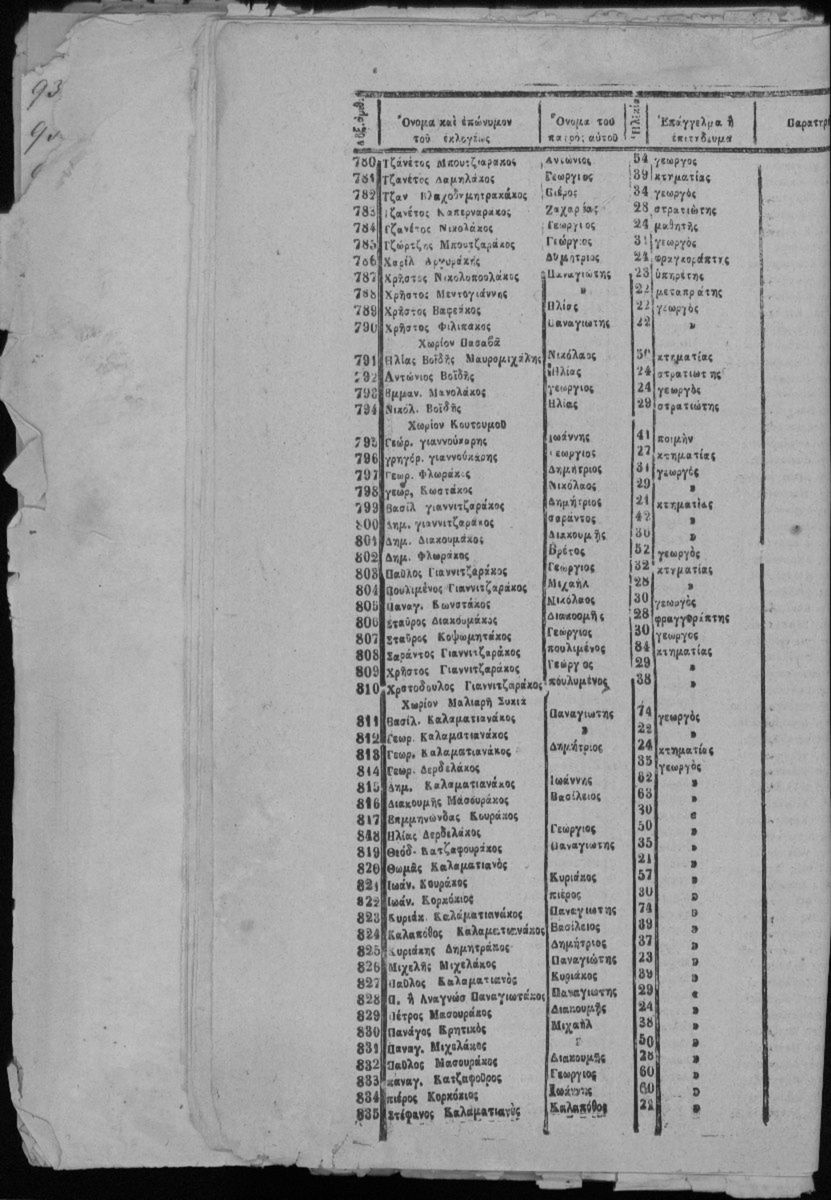 93
Αὔξ. ἀριθ. Ὄνομα καὶ ἐπώνυμον τοῦ ἐκλογέως Ὄνομα τοῦ πατρὸς αὐτοῦ Ἡλικία Ἐπάγγελμα ἢ ἐπιτήδευμα Παρατηρ
780 Τζανέτος Μπουτζιαράκος Ἀντώνιος 54 γεωργος
781 Τζανέτος Δαμηλάκος Γεωργιος 39 κτηματίας
782 Τζαν Βλαχοδημητρακάκος Πιέρος 34 γεωργὸς
783 Τζανέτος Καπερναράκος Ζαχαρίας 28 στρατιώτης
784 Τζανέτος Νικολάκος Γεωργιος 24 μαθητῆς
785 Τζώρτζης Μπουτζαράκος Γεώργιος 31 γεωργὸς
786 Χαρίλ Ἀργυράκης Δημήτριος 24 φραγκοράπτης
787 Χρῆστος Νικολοπουλάκος Παναγιώτης 23 ὑπηρέτης
788 Χρῆστος Μεντογιάννης » 22 μεταπράτης
789 Χρῆστος Βαφεάκος Ηλίας 22 γεωργὸς
790 Χρῆστος Φιλιπάκος Παναγιωτης 22 »
Χωρίον Πασαβᾶ
791 Ηλίας Βοϊδῆς Μαυρομιχάλης Νικόλαος 50 κτηματίας
792 Αντώνιος Βοϊδῆς Ηλίας 24 στρατιωτης
793 Εμμαν. Μανολάκος γεωργιος 24 γεωργὸς
794 Νικόλ. Βοϊδῆς Ηλίας 29 στρατιώτης
Χωρίον Κουτουμοῦ
795 Γεώρ. γιαννουκαρης Ιωάννης 41 ποιμὴν
796 γρηγόρ. γιαννουκάρης Γεωργιος 27 κτηματίας
797 Γεωρ. Φλωράκος Δημήτριος 31 γεωργὸς
798 γεωρ, Κωστάκος Νικόλαος 29 »
799 Βασίλ γιαννιτζαράκος Δημήτριος 21 κτηματίας
800 Δημ. γιαννιτζαράκος σαράντος 42 »
801 Δημ. Διακουμάκος Διακουμῆς 30 »
802 Δημ. Φλωράκος Βρέτος 52 γεωργὸς
803 Παῦλος Γιαννιτζαράκος Γεώργιος 32 κτηματίας
804 Πουλιμένος Γιαννιτζαράκος Μιχαὴλ 28 »
805 Παναγ. Κωνστάκος Νικόλαος 30 γεωργὸς
806 Σταῦρος Διακουμάκος Διακοομῆς 28 φραγγοράπτης
807 Σταῦρος Κοψωμητάκος Γεώργιος 30 γεωργος
808 Σαράντος Γιαννιτζαράκος πουλιμένος 84 κτηματίας
809 Χρῆστος Γιαννιτζαράκος Γεώργος 29 »
810 Χρστοδουλος Γιαννιτζαράκος πουλυμένος 38 »
Χωρίον Μαλιαρὴ Συκιὰ
811 Βασίλ. Καλαματιανάκος Παναγιωτης 74 γεωργὸς
812 Γεωρ. Καλαματιανάκος » 22 »
813 Γεωρ. Καλαματιανάκος Δημήτριος 24 κτηματίας
814 Γεωρ. Δερδελάκος 35 γεωργὸς
815 Δημ. Καλαματιανάκος Ιωάννης 62 »
816 Διακουμῆς Μασουράκος Βασίλειος 63 »
817 Επαμηνώνδας Κουράκος 30 «
818 Ηλίας Δερδελάκος Γεώργιος 50 »
819 Θεόδ. Κατζαφουράκος Παναγιωτης 35 »
820 Θωμᾶς Καλαματιανὸς 21 »
821 Ιωάν. Κουράκος Κυριάκος 57 »
822 Ιωάν. Κορκόκιος πιέρος 30 »
823 Κυριάκ. Καλαματιανάκος Παναγιωτης 74 »
824 Καλαπόθος Καλαματιανάκος Βασίλειος 39 »
825 Κυριάκης Δημητράκος Δημήτριος 37 »
826 Μιχελῆς Μιχελάκος Παναγιώτης 23 »
827 Παῦλος Καλαματιανὸς Κυριάκος 39 »
828 Π. ἢ Αναγνώσ Παναγιωτάκος Παναγιωτης 29 «
829 Πέτρος Μασουράκος Διακουμῆς 24 »
830 Πανάγος Κρητικὸς Μιχαὴλ 38 »
831 Παναγ. Μιχελάκος » 50 »
832 Παῦλος Μασουράκος Διακουμῆς 28 »
833 παναγ. Κατζαφοῦρος Γεωργιος 60 »
834 πιέρος Κορκόκιος Ιωάννης 60 »
835 Στέφανος Καλαματιανὸς Καλαπόθος 22 »